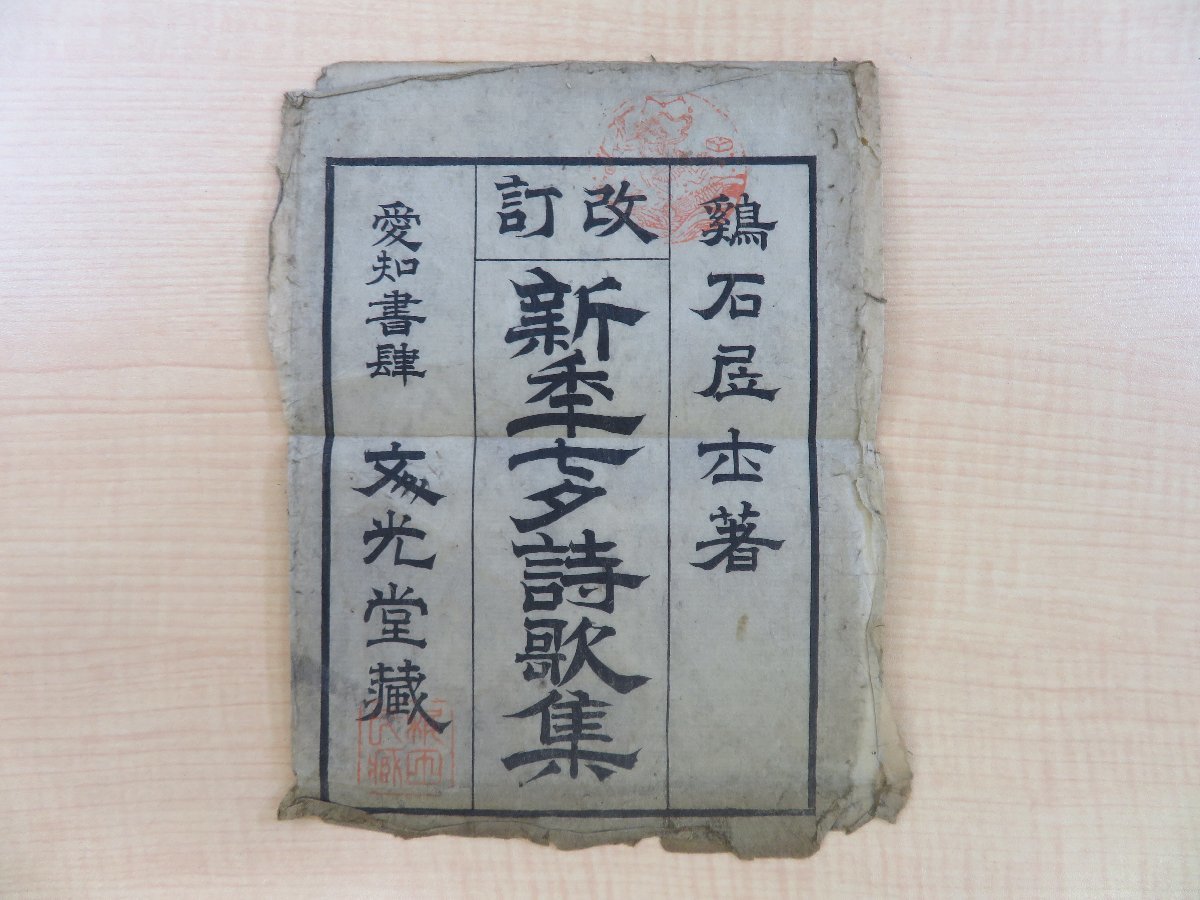 鷄石居士著
改訂
新秊七夕詩歌集
愛知書肆 文光堂藏